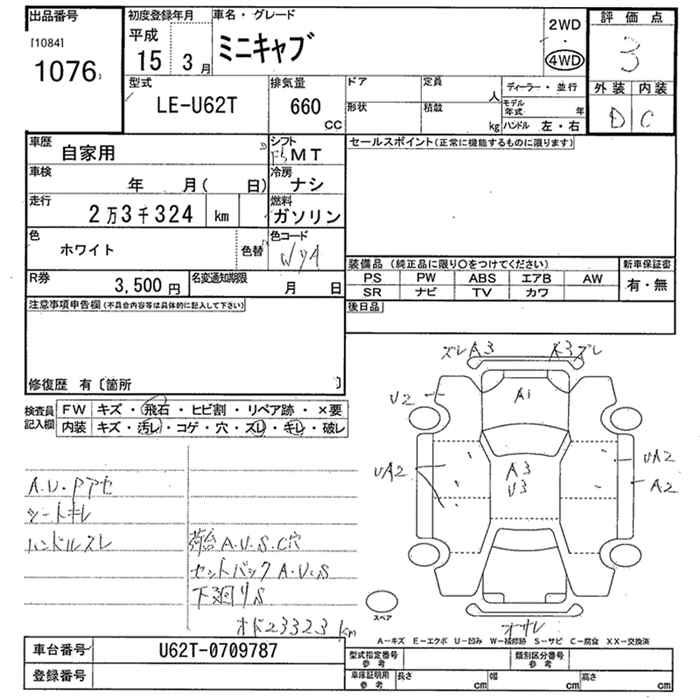 出品番号 初度登録年月 車名・グレード 2WD 評価点
[1084] 平成 ミニキャブ 4WD 3
1076 15年 3月
型式 排気量 ドア 定員 人 ディーラー・並行 外装 内装
LE-U62T 660cc 形状 積載 kg モデル年式 年 D C
ハンドル 左・右
車歴 自家用 シフト F5MT セールスポイント(正常に機能するものに限ります)
車検 年 月( 日) 冷房 ナシ
走行 2万3千324 km 燃料 ガソリン
色 ホワイト 色替 色コード
装備品 (純正品に限り○をつけてください) 新車保証書
R券 3,500円 名変通知期限 月 日 PS PW ABS エアB AW 有・無
SR ナビ TV カワ
注意事項申告欄(不具合内容等は具体的に記入して下さい) 後日品
修復歴 有〔箇所 〕
ズレA3 ズレ
検査員記入欄 FW キズ・飛石・ヒビ割・リペア跡・×要
内装 キズ・汚レ・コゲ・穴・ズレ・キレ・破レ
U2 A1
UA2 A3 UA2
U3 A2
A.U.Pアセ
シートキレ
ハンドルスレ 荷台A.U.S.C穴
セットバックA.U.S
下廻りS
スペア
オド23323km
A−キズ E−エクボ U−凹み W−補修跡 S−サビ C−腐食 XX−交換済
車台番号 U62T-0709787 型式指定番号 参考 類別区分番号 参考
登録番号 車庫証明用 参考 長さ cm 幅 cm 高さ cm